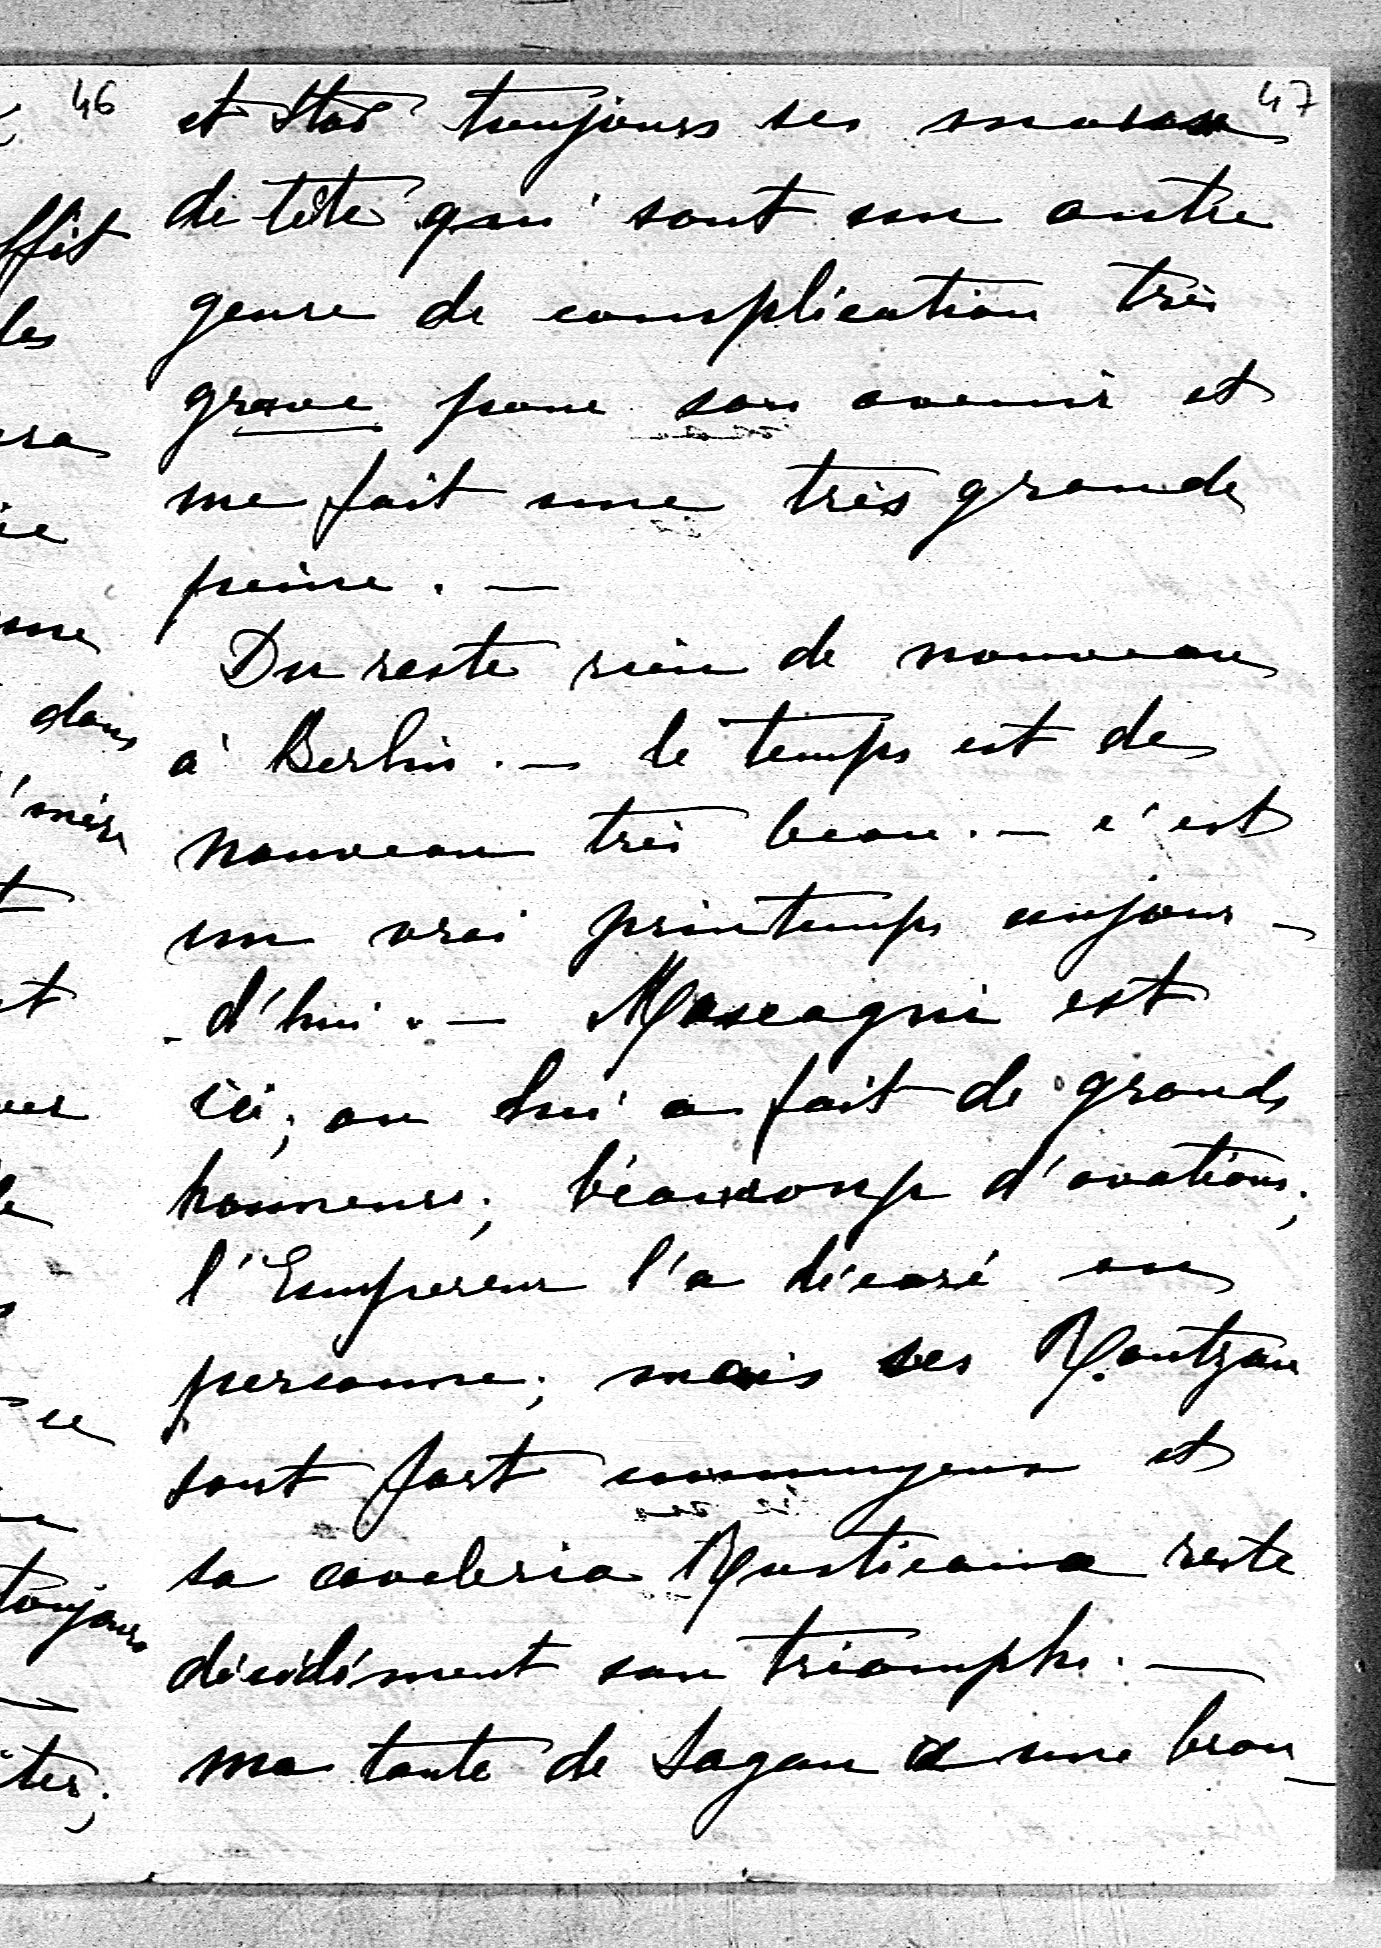 46
47
ffit
les
dans
toujours
et Stas toujours ses maux
de tête qui sont un autre
genre de complication très
grave pour son avenir et
me fait une très grande
peine. —
Du reste rien de nouveau
à Berlin. — le temps est de
nouveau très beau. — c'est
un vrai printemps aujour-
-d'hui. — Mascagni est
ici; on lui a fait de grands
honneurs; beaucoup d'ovations;
l'Empereur l'a décoré en
personne; mais ses Rantzau
sont fort ennuyeux et
sa cavaleria Rusticana reste
décidément son triomphe. —
ma tante de Sagan a une bron-